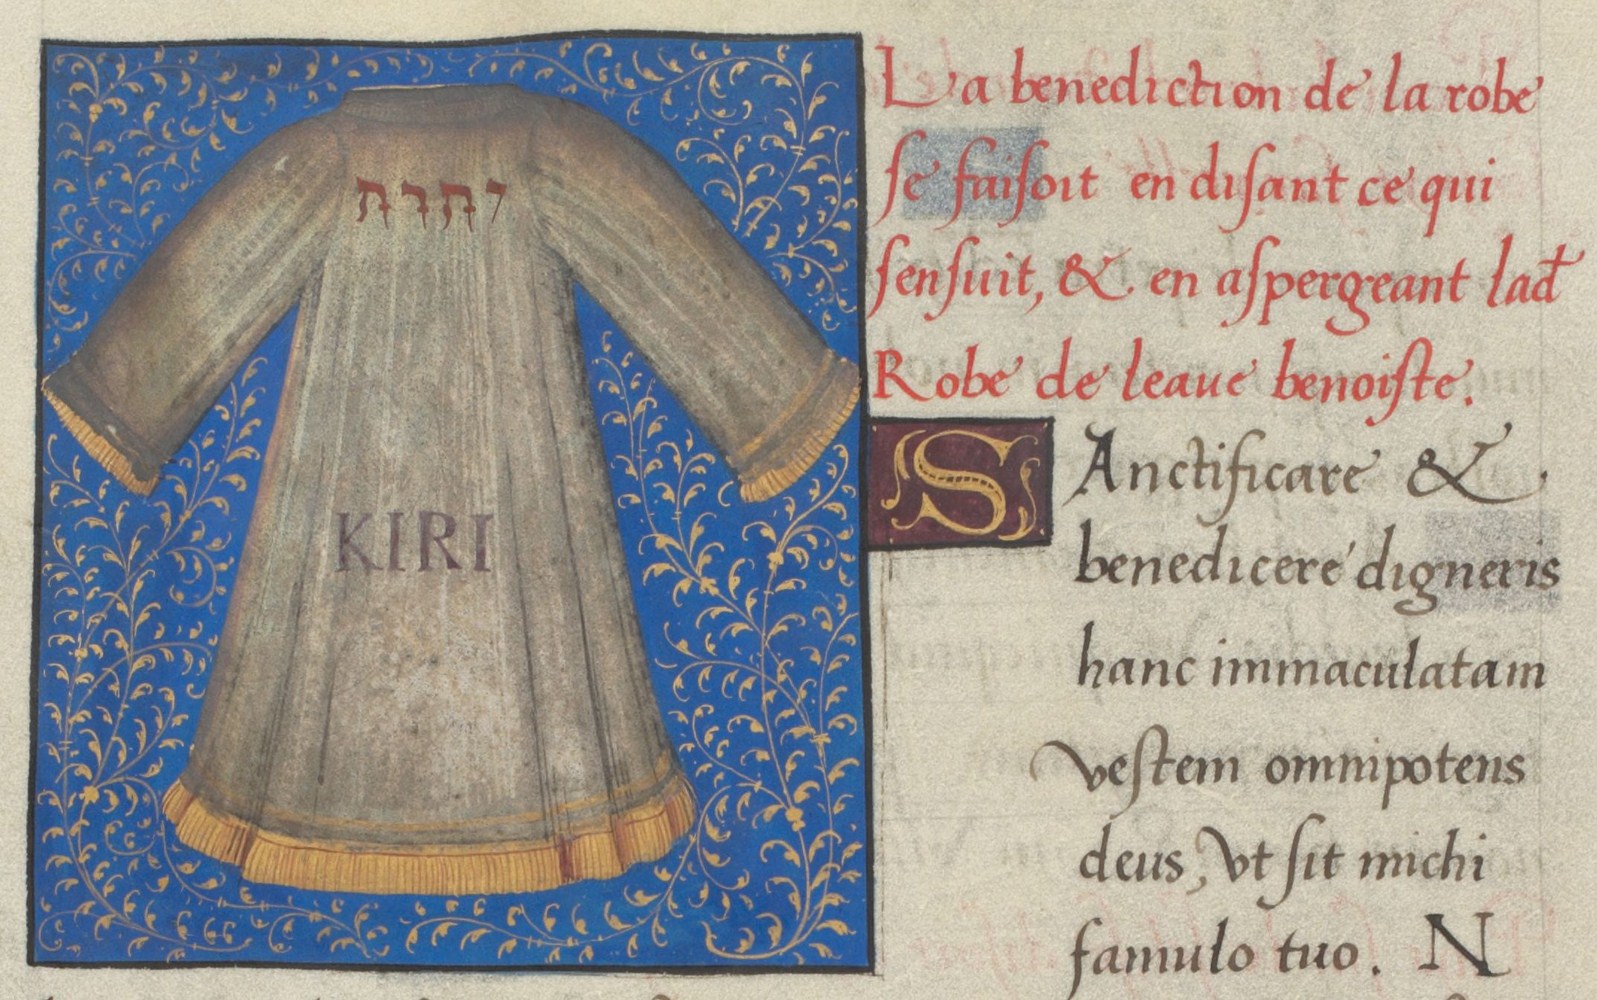 יהוה
KIRI
La benediction de la robe
se faisoit en disant ce qui
sensuit, & en aspergeant lad
Robe de leaue benoiste.
SAnctificare &
benedicere digneris
hanc immaculatam
vestem omnipotens
deus, vt sit michi
famulo tuo. N